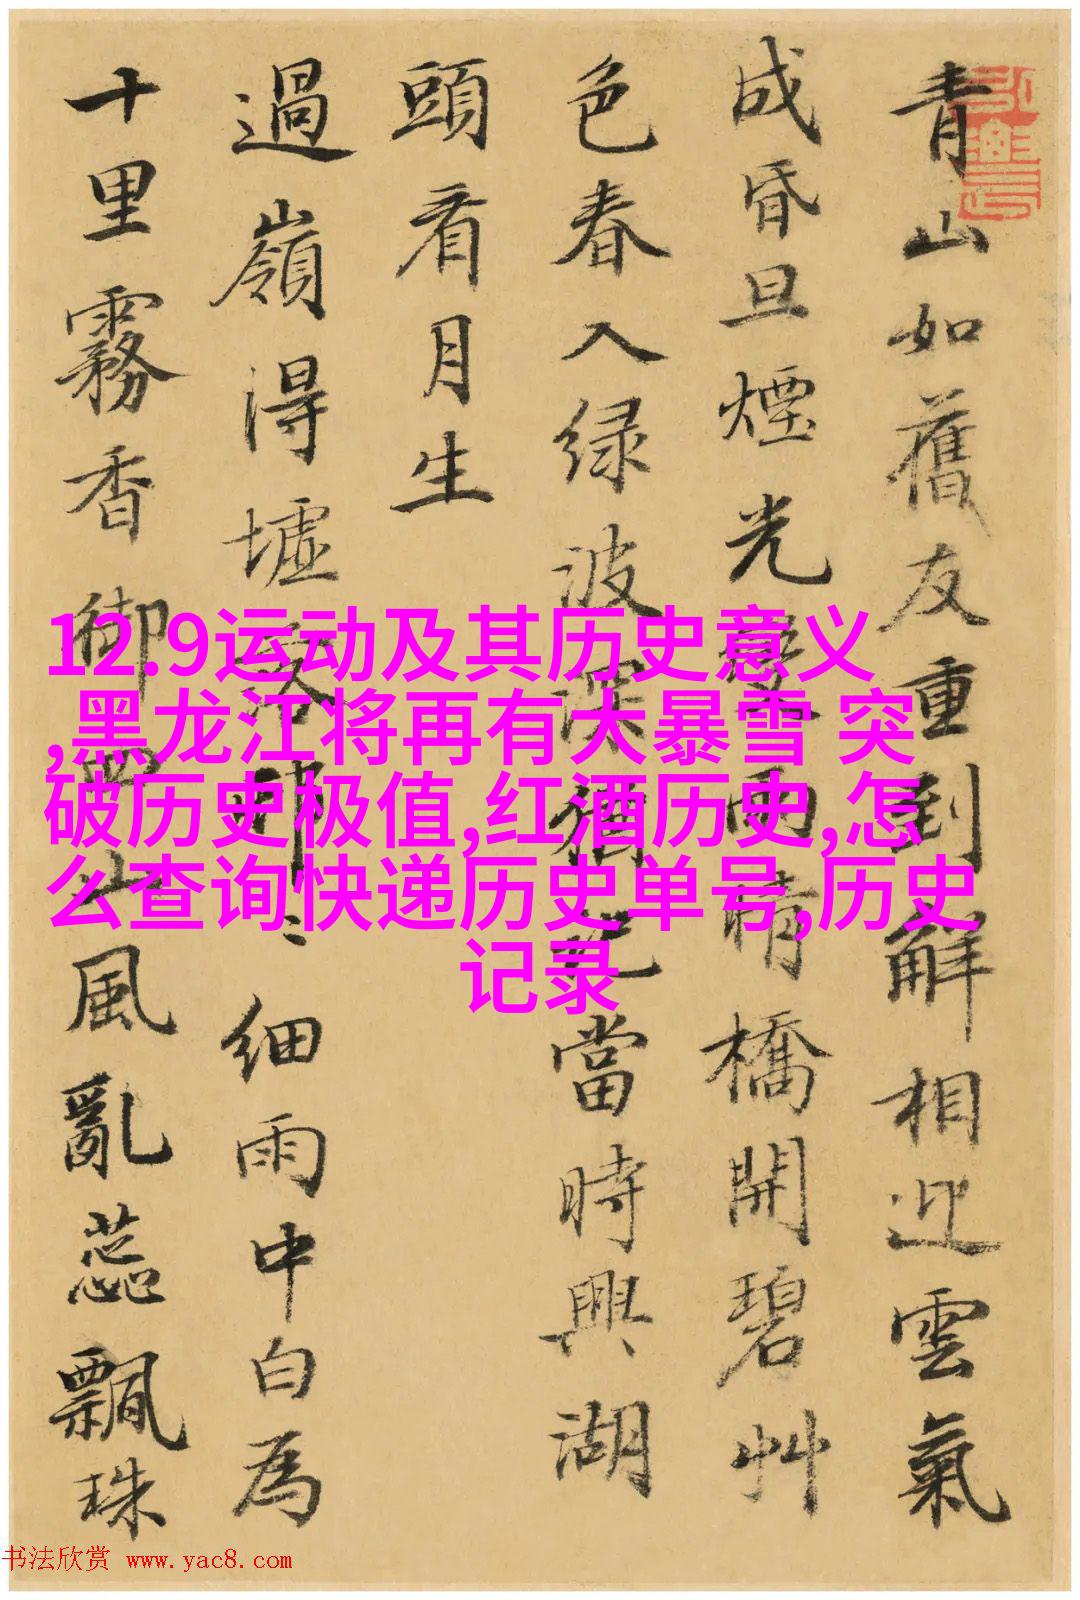 青山如舊友重到解相迎雲氣
成昏旦煙光變雨晴橋開碧艸
色春入绿波深猶當時興湖
頭看月生
過嶺得墟落細雨中白為
十里霧香御風亂蕊飄珠
12.9运动及其历史意义
,黑龙江将再有大暴雪 突
破历史极值,红酒历史,怎
么查询快递历史单号,历史
记录
书法欣赏 www.yac8.com